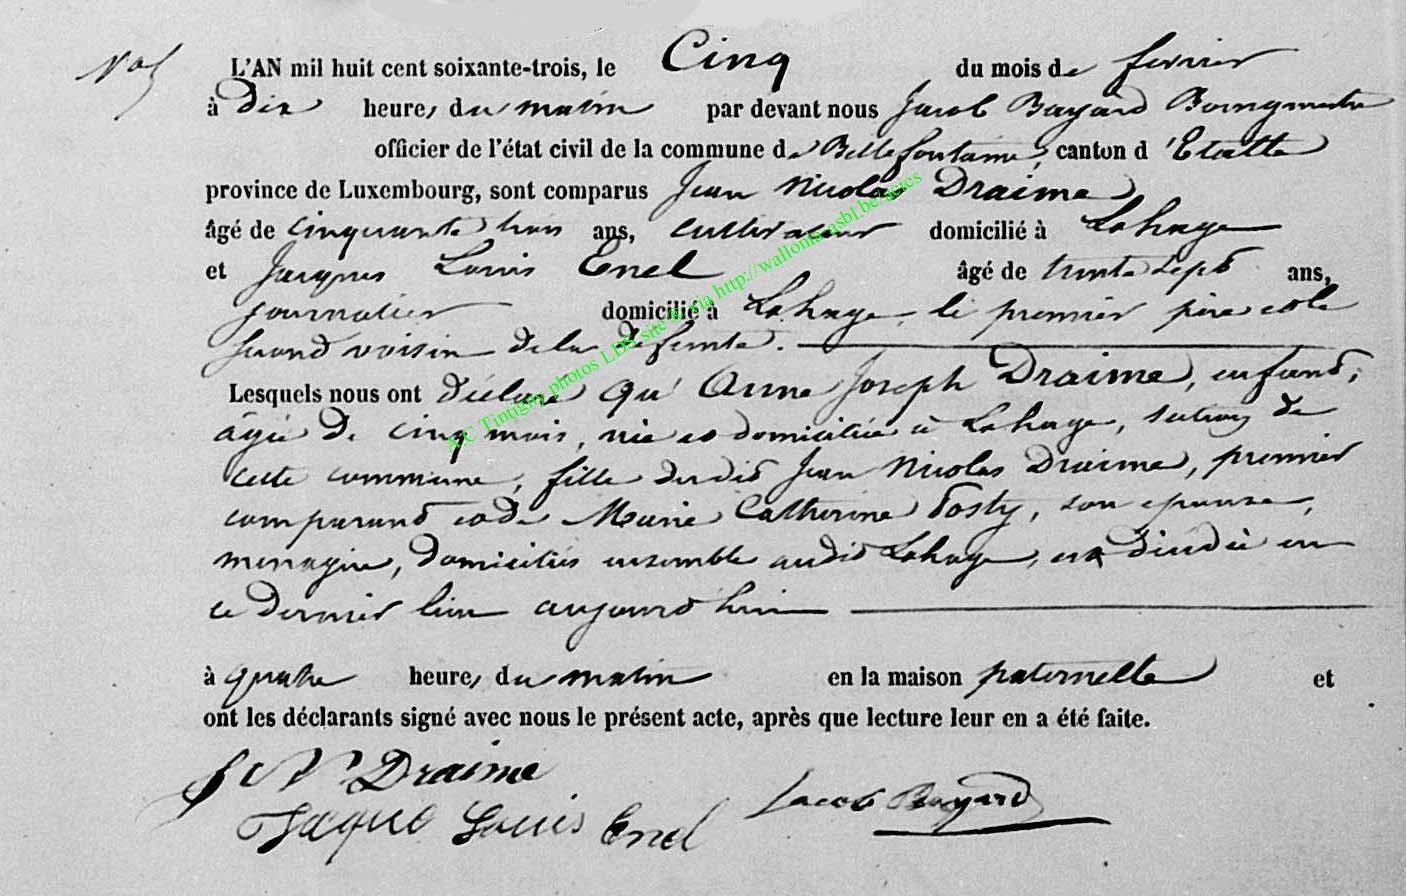 N° 5
L'AN mil huit cent soixante-trois, le Cinq du mois de fevrier
à dix heures du matin par devant nous Jacob Bayard Bourgmestre
officier de l'état civil de la commune de Bellefontaine, canton d'Etalle
province de Luxembourg, sont comparus Jean Nicolas Draime
âgé de cinquante trois ans, cultivateur domicilié à Lahage
et Jacques Louis Enel âgé de trente sept ans,
journalier domicilié à Lahage, le premier père et le
second voisin de la défunte.
Lesquels nous ont déclaré qu'Anne Joseph Draime, enfant,
âgée de cinq mois, née et domiciliée à Lahage, section de
cette commune, fille dudit Jean Nicolas Draime, premier
comparant et de Marie Catherine Tosty, son epouse,
menagère, domiciliés ensemble audit Lahage, est décédée en
ce dernier lieu aujourd'hui
à quatre heures du matin en la maison paternelle et
ont les déclarants signé avec nous le présent acte, après que lecture leur en a été faite.
J N Draime
Jaque Louis Enel
Jacob Bayard
A.C Tintigny photos LDS site via http://wallonia.asbl.be/actes